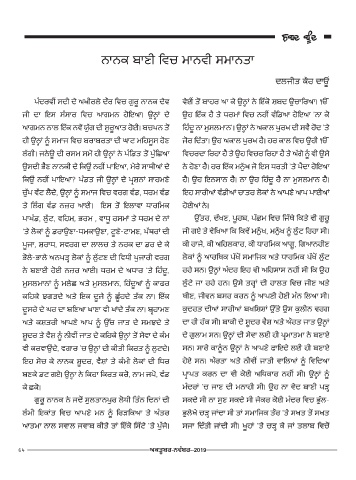 ਸ਼ਬਦ ਬੂੰਦ
ਨਾਨਕ ਬਾਣੀ ਵਿਚ ਮਾਨਵੀ ਸਮਾਨਤਾ
ਦਲਜੀਤ ਕੌਰ ਦਾਊਂ
ਪੰਦਰਵੀਂ ਸਦੀ ਦੇ ਅਖੀਰਲੇ ਦੌਰ ਵਿਚ ਗੁਰੂ ਨਾਨਕ ਦੇਵ
ਜੀ ਦਾ ਇਸ ਸੰਸਾਰ ਵਿਚ ਆਗਮਨ ਹੋਇਆ। ਉਨ੍ਹਾਂ ਦੇ
ਆਗਮਨ ਨਾਲ ਇੱਕ ਨਵੇਂ ਯੁੱਗ ਦੀ ਸ਼ੁਰੂਆਤ ਹੋਈ। ਬਚਪਨ ਤੋਂ
ਹੀ ਉਨ੍ਹਾਂ ਨੂੰ ਸਮਾਜ ਵਿਚ ਬਰਾਬਰਤਾ ਦੀ ਘਾਟ ਮਹਿਸੂਸ ਹੋਣ
ਲੱਗੀ। ਜਨੇਊ ਦੀ ਰਸਮ ਸਮੇਂ ਹੀ ਉਨ੍ਹਾਂ ਨੇ ਪੰਡਿਤ ਤੋਂ ਪੁੱਛਿਆ
ਉਸਦੀ ਭੈਣ ਨਾਨਕੀ ਦੇ ਕਿਉਂ ਨਹੀਂ ਪਾਇਆ, ਮੇਰੇ ਸਾਥੀਆਂ ਦੇ
ਕਿਉਂ ਨਹੀਂ ਪਾਇਆ? ਪੰਡਤ ਜੀ ਉਨ੍ਹਾਂ ਦੇ ਪ੍ਰਸ਼ਨਾਂ ਸਾਹਮਣੇ
ਚੁੱਪ ਵੱਟ ਲੈਂਦੇ, ਉਨ੍ਹਾਂ ਨੂੰ ਸਮਾਜ ਵਿਚ ਵਰਗ ਵੰਡ, ਧਰਮ ਵੰਡ
ਤੇ ਲਿੰਗ ਵੰਡ ਨਜ਼ਰ ਆਈ। ਇਸ ਤੋਂ ਇਲਾਵਾ ਧਾਰਮਿਕ
ਪਾਖੰਡ, ਲੁੱਟ, ਵਹਿਮ, ਭਰਮ , ਵਾਧੂ ਰਸਮਾਂ ਤੇ ਧਰਮ ਦੇ ਨਾਂ
'ਤੇ ਲੋਕਾਂ ਨੂੰ ਡਰਾਉਣਾ-ਧਮਕਾਉਣਾ, ਟੂਣੇ-ਟਾਮਣ, ਪੱਥਰਾਂ ਦੀ
ਪੂਜਾ, ਸ਼ਰਾਧ, ਸਵਰਗ ਦਾ ਲਾਲਚ ਤੇ ਨਰਕ ਦਾ ਡਰ ਦੇ ਕੇ
ਭੋਲੇ-ਭਾਲੇ ਅਨਪੜ੍ਹ ਲੋਕਾਂ ਨੂੰ ਲੁੱਟਣ ਦੀ ਵਿਧੀ ਪੁਜਾਰੀ ਵਰਗ
ਨੇ ਬਣਾਈ ਹੋਈ ਨਜ਼ਰ ਆਈ। ਧਰਮ ਦੇ ਅਧਾਰ 'ਤੇ ਹਿੰਦੂ,
ਮੁਸਲਮਾਨਾਂ ਨੂੰ ਮਲੇਛ ਅਤੇ ਮੁਸਲਮਾਨ, ਹਿੰਦੂਆਂ ਨੂੰ ਕਾਫ਼ਰ
ਕਹਿਕੇ ਭਗਤਦੇ ਅਤੇ ਇਕ ਦੂਜੇ ਨੂੰ ਛੂੰਹਦੇ ਤੱਕ ਨਾ। ਇੱਕ
ਦੂਸਰੇ ਦੇ ਘਰ ਦਾ ਬਣਿਆ ਖਾਣਾ ਵੀ ਖਾਂਦੇ ਤੱਕ ਨਾ। ਬ੍ਰਾਹਮਣ
ਅਤੇ ਕਸ਼ਤਰੀ ਆਪਣੇ ਆਪ ਨੂੰ ਉੱਚ ਜਾਤ ਦੇ ਸਮਝਦੇ ਤੇ
ਸ਼ੂਦਰ ਤੇ ਵੈਸ਼ ਨੂੰ ਨੀਵੀਂ ਜਾਤ ਦੇ ਕਹਿਕੇ ਉਨ੍ਹਾਂ ਤੋਂ ਸੇਵਾ ਦੇ ਕੰਮ
ਵੀ ਕਰਵਾਉਂਦੇ, ਵਗਾਰ 'ਚ ਉਨ੍ਹਾਂ ਦੀ ਕੀਤੀ ਕਿਰਤ ਨੂੰ ਲੁਟਦੇ।
ਇਹ ਸੋਚ ਕੇ ਨਾਨਕ ਸ਼ੂਦਰ, ਵੈਸ਼ਾਂ ਤੇ ਕੰਮੀ ਲੋਕਾਂ ਦੀ ਧਿਰ
ਬਣਕੇ ਡਟ ਗਏ। ਉਨ੍ਹਾਂ ਨੇ ਕਿਹਾ ਕਿਰਤ ਕਰੋ, ਨਾਮ ਜਪੋ, ਵੰਡ
ਕੇ ਛਕੋ।
ਗੁਰੂ ਨਾਨਕ ਨੇ ਜਦੋਂ ਸੁਲਤਾਨਪੁਰ ਲੋਧੀ ਤਿੰਨ ਦਿਨਾਂ ਦੀ
ਲੰਮੀ ਇਕਾਂਤ ਵਿਚ ਆਪਣੇ ਮਨ ਨੂੰ ਰਿੜਕਿਆ ਤੇ ਅੰਤਰ
ਆਤਮਾ ਨਾਲ ਸਵਾਲ ਜਵਾਬ ਕੀਤੇ ਤਾਂ ਇੱਕੋ ਸਿੱਟੇ 'ਤੇ ਪੁੱਜੇ।
ਵੇਈਂ ਤੋਂ ਬਾਹਰ ਆ ਕੇ ਉਨ੍ਹਾਂ ਨੇ ਇੱਕੋ ਸ਼ਬਦ ਉਚਾਰਿਆ। ਘੰਿ
ਉਹ ਇੱਕ ਹੈ ਤੇ ਧਰਮਾਂ ਵਿਚ ਨਹੀਂ ਵੰਡਿਆ ਹੋਇਆ 'ਨਾ ਕੋ
ਹਿੰਦੂ ਨਾ ਮੁਸਲਮਾਨ'। ਉਨ੍ਹਾਂ ਨੇ ਅਕਾਲ ਪੁਰਖ ਦੀ ਸਵੈ ਹੋਂਦ 'ਤੇ
ਜ਼ੋਰ ਦਿੱਤਾ। ਉਹ ਅਕਾਲ ਪੁਰਖ ਹੈ। ਹਰ ਕਾਲ ਵਿਚ ਉਹੀ ਘੰਿ
ਵਿਚਰਦਾ ਰਿਹਾ ਹੈ ਤੇ ਉਹ ਵਿਚਰ ਰਿਹਾ ਹੈ ਤੇ ਅੱਗੋਂ ਨੂੰ ਵੀ ਉਸੇ
ਨੇ ਹੋਣਾ ਹੈ। ਹਰ ਇੱਕ ਮਨੁੱਖ ਜੋ ਇਸ ਧਰਤੀ 'ਤੇ ਪੈਦਾ ਹੋਇਆ
ਹੈ। ਉਹ ਇਨਸਾਨ ਹੈ। ਨਾ ਉਹ ਹਿੰਦੂ ਹੈ ਨਾ ਮੁਸਲਮਾਨ ਹੈ।
ਇਹ ਸਾਰੀਆਂ ਵੰਡੀਆਂ ਚਾਤਰ ਲੋਕਾਂ ਨੇ ਆਪਣੇ ਆਪ ਪਾਈਆਂ
ਹੋਈਆਂ ਨੇ।
ਉੱਤਰ, ਦੱਖਣ, ਪੂਰਬ, ਪੱਛਮ ਵਿਚ ਜਿੱਥੇ ਕਿਤੇ ਵੀ ਗੁਰੂ
ਜੀ ਗਏ ਤੇ ਵੇਖਿਆ ਕਿ ਕਿਵੇਂ ਮਨੁੱਖ, ਮਨੁੱਖ ਨੂੰ ਲੁੱਟ ਰਿਹਾ ਸੀ।
ਕੀ ਰਾਜੇ, ਕੀ ਅਹਿਲਕਾਰ, ਕੀ ਧਾਰਮਿਕ ਆਗੂ, ਗਿਆਨਹੀਣ
ਲੋਕਾਂ ਨੂੰ ਆਰਥਿਕ ਪੱਖੋਂ ਸਮਾਜਿਕ ਅਤੇ ਧਾਰਮਿਕ ਪੱਖੋਂ ਲੁੱਟ
ਰਹੇ ਸਨ। ਉਨ੍ਹਾਂ ਅੰਦਰ ਇਹ ਵੀ ਅਹਿਸਾਸ ਨਹੀਂ ਸੀ ਕਿ ਉਹ
ਲੁੱਟੇ ਜਾ ਰਹੇ ਹਨ। ਉਸੇ ਤਰ੍ਹਾਂ ਦੀ ਹਾਲਤ ਵਿਚ ਜੀਣ ਅਤੇ
ਥੀਣ, ਜੀਵਨ ਬਸਰ ਕਰਨ ਨੂੰ ਆਪਣੀ ਹੋਣੀ ਮੰਨ ਲਿਆ ਸੀ।
ਕੁਦਰਤ ਦੀਆਂ ਸਾਰੀਆਂ ਬਖਸ਼ਿਸ਼ਾਂ ਉੱਤੇ ਉਸ ਕੁਲੀਨ ਵਰਗ
ਦਾ ਹੀ ਹੱਕ ਸੀ। ਬਾਕੀ ਦੇ ਸ਼ੂਦਰ ਵੈਸ਼ ਅਤੇ ਔਰਤ ਜਾਤ ਉਨ੍ਹਾਂ
ਦੇ ਗੁਲਾਮ ਸਨ। ਉਨ੍ਹਾਂ ਦੀ ਸੇਵਾ ਲਈ ਹੀ ਪ੍ਰਮਾਤਮਾ ਨੇ ਬਣਾਏ
ਸਨ। ਸਾਰੇ ਕਾਨੂੰਨ ਉਨ੍ਹਾਂ ਨੇ ਆਪਣੇ ਫਾਇਦੇ ਲਈ ਹੀ ਬਣਾਏ
ਹੋਏ ਸਨ। ਔਰਤਾਂ ਅਤੇ ਨੀਵੀਂ ਜਾਤੀ ਵਾਲਿਆਂ ਨੂੰ ਵਿਦਿਆ
ਪ੍ਰਾਪਤ ਕਰਨ ਦਾ ਵੀ ਕੋਈ ਅਧਿਕਾਰ ਨਹੀਂ ਸੀ। ਉਨ੍ਹਾਂ ਨੂੰ
ਮੰਦਰਾਂ 'ਚ ਜਾਣ ਦੀ ਮਨਾਹੀ ਸੀ। ਉਹ ਨਾ ਵੇਦ ਬਾਣੀ ਪੜ੍ਹ
ਸਕਦੇ ਸੀ ਨਾ ਸੁਣ ਸਕਦੇ ਸੀ ਜੇਕਰ ਕੋਈ ਮੰਦਰ ਵਿਚ ਭੁੱਲ-
ਭੁਲੇਖੇ ਚੜ੍ਹ ਜਾਂਦਾ ਸੀ ਤਾਂ ਸਮਾਜਿਕ ਤੌਰ 'ਤੇ ਸਖ਼ਤ ਤੋਂ ਸਖ਼ਤ
ਸਜ਼ਾ ਦਿੱਤੀ ਜਾਂਦੀ ਸੀ। ਖੂਹਾਂ 'ਤੇ ਚੜ੍ਹ ਕੇ ਜਾਂ ਤਲਾਬ ਵਿੱਚੋਂ
੬੪
ਅਕਤੂਬਰ-ਨਵੰਬਰ-2019